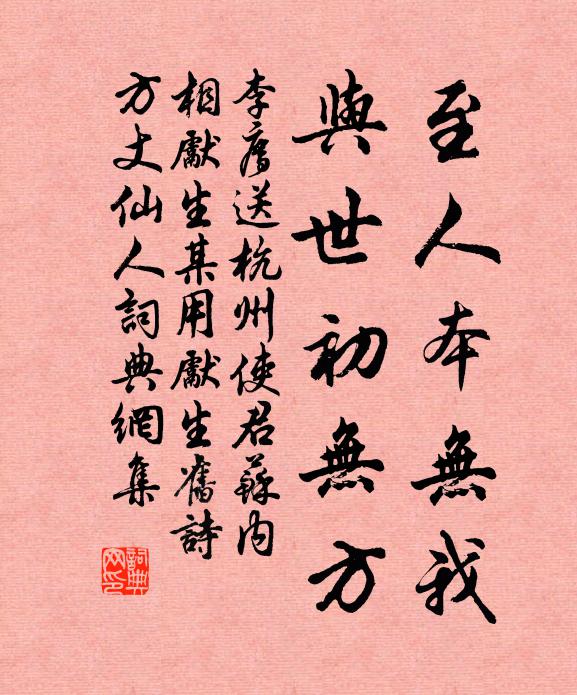 至人本無我
與世初無方
李廌送杭州使君蘇內
相獻生某用獻生舊詩
方丈仙人詞典網集
詞典
网印